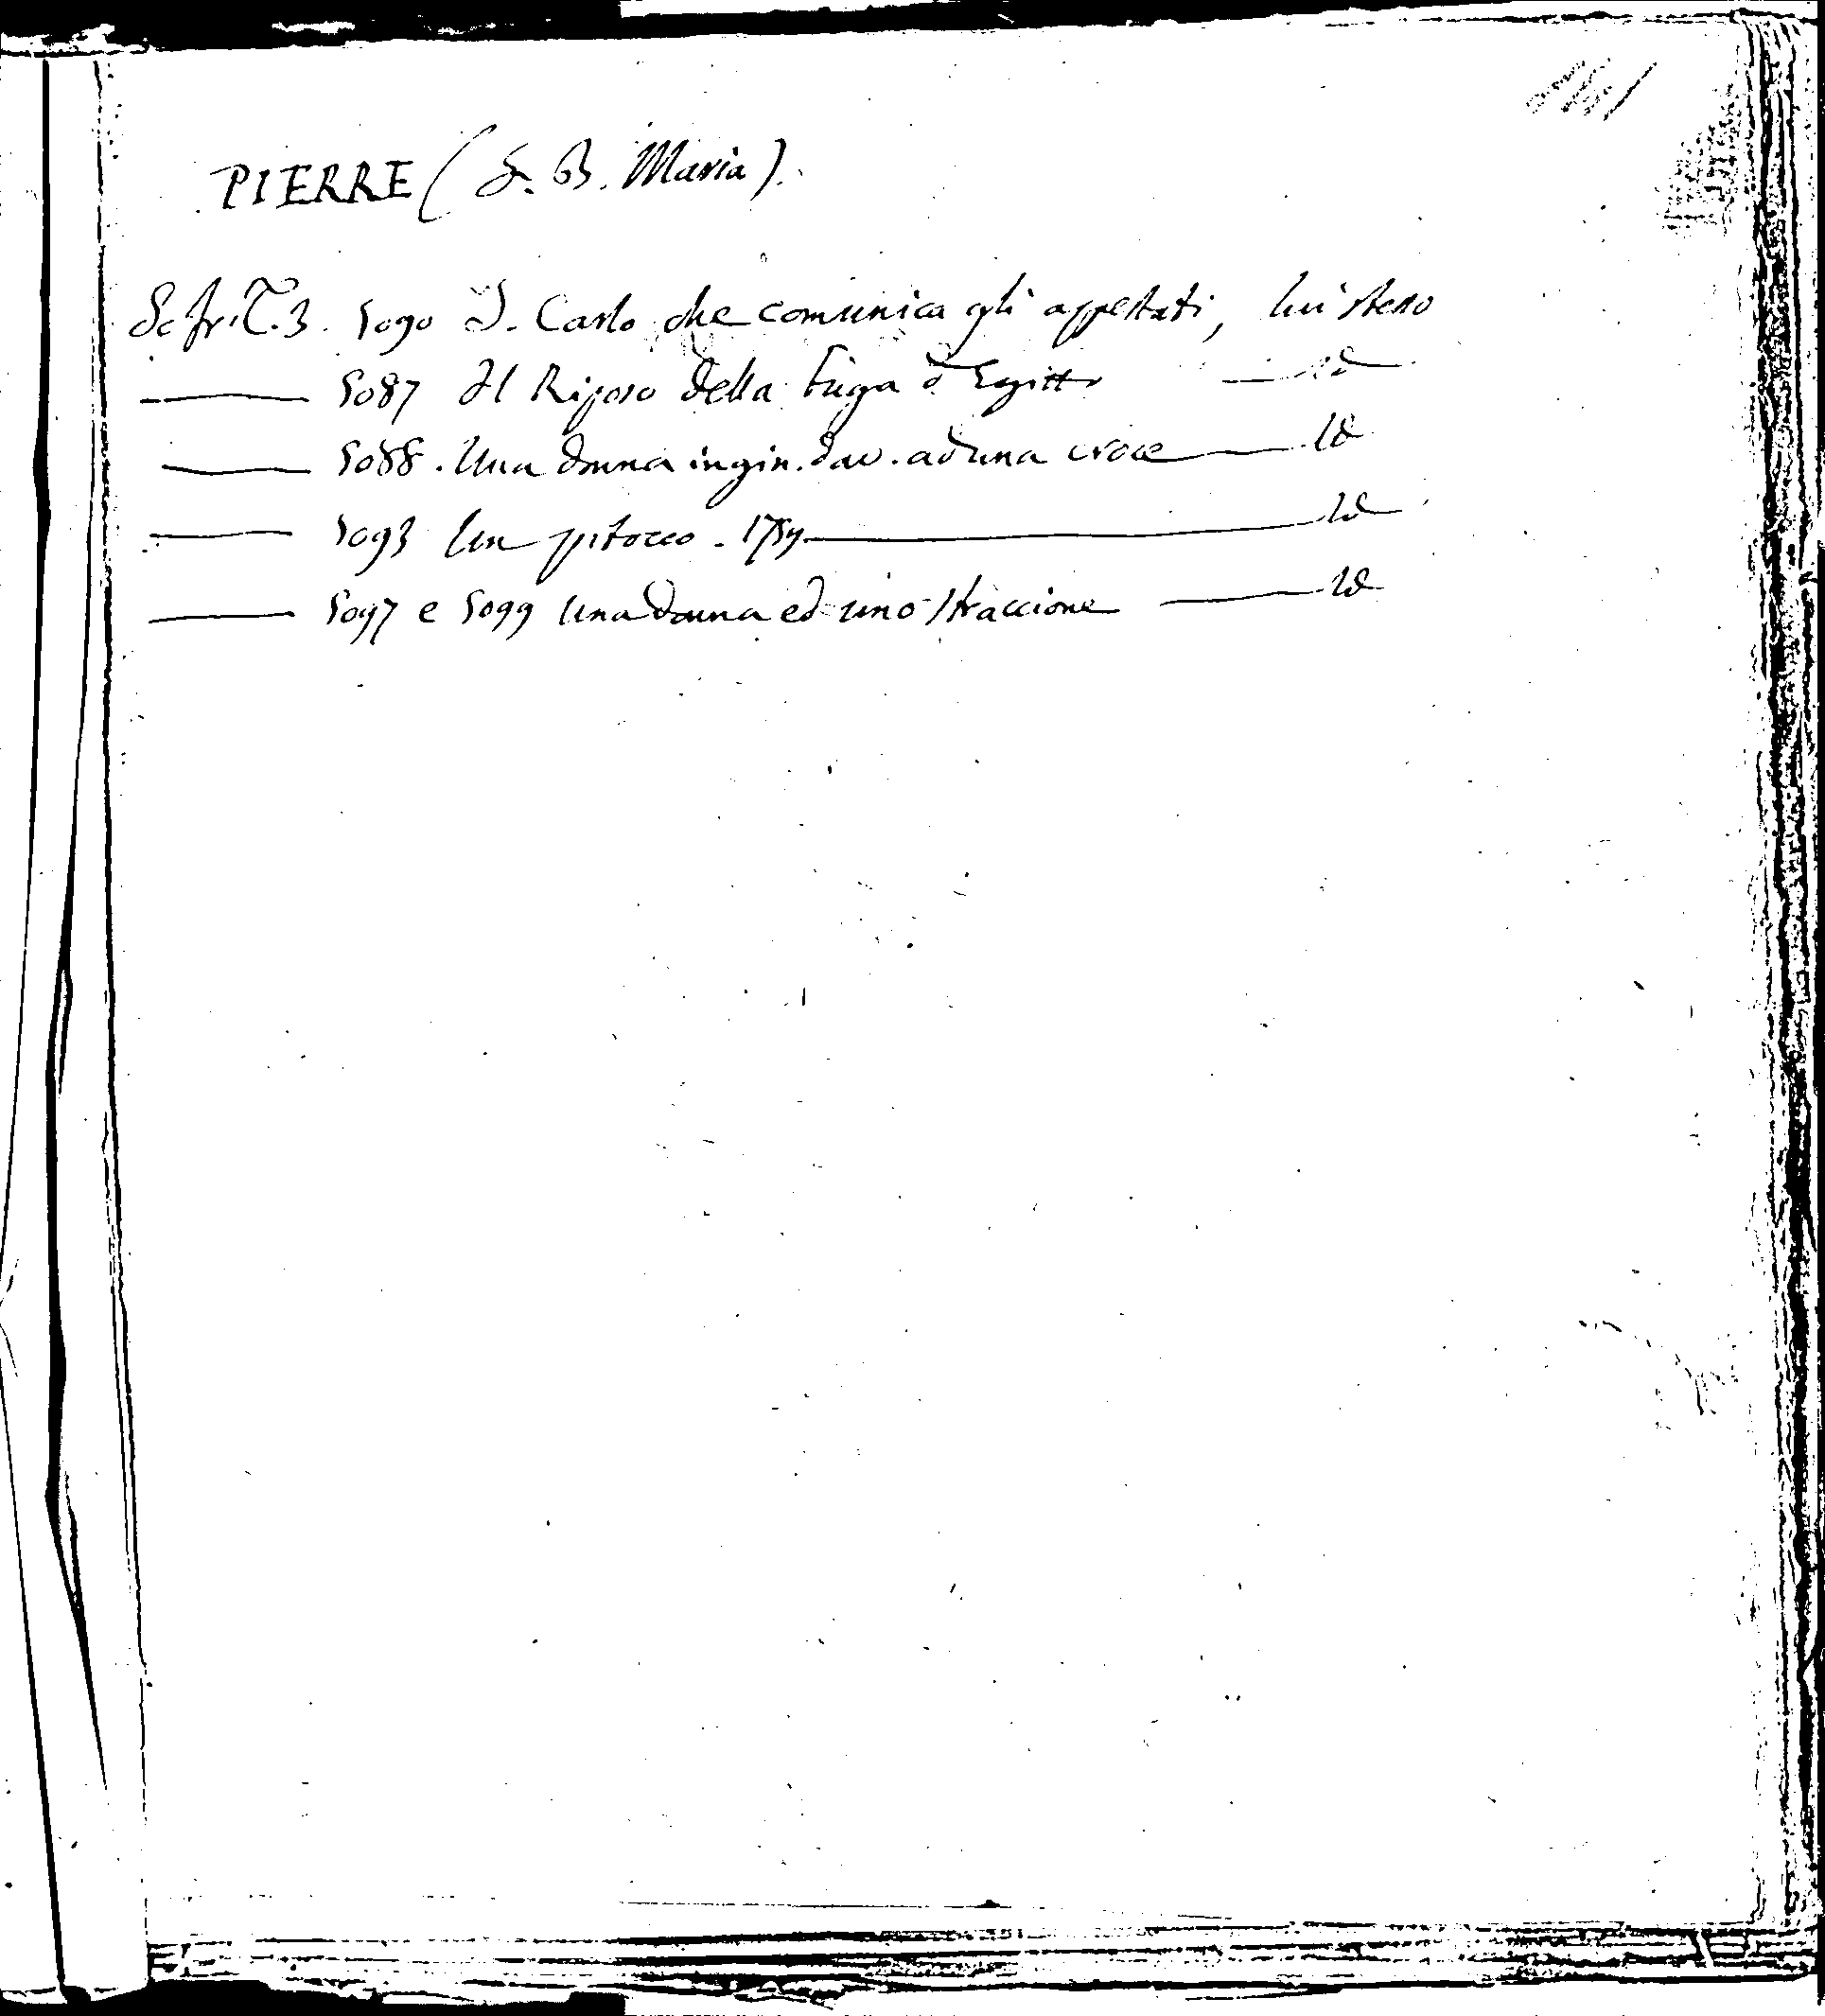 PIERRE (G. B. Maria).
Sc. fr. T. 3. 5090 S. Carlo che comunica gli appestati, lui stesso
5087 Il Riposo della fuga d'Egitto Id
5088. Una donna ingin. dav. ad una croce Id
5093 Un pitocco. 1759 Id
5097 e 5099 Una donna ed uno straccione Id